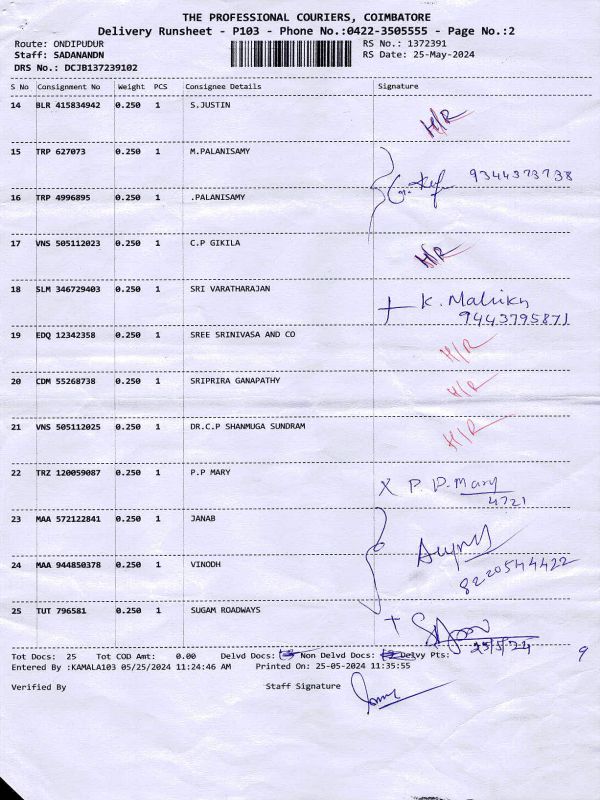 THE PROFESSIONAL COURIERS, COIMBATORE
Delivery Runsheet - P103 - Phone No.:0422-3505555 - Page No.:2
Route: ONDIPUDUR RS No.: 1372391
Staff: SADANANDN RS Date: 25-May-2024
DRS No.: DCJB137239102
S No Consignment No Weight PCS Consignee Details Signature
14 BLR 415834942 0.250 1 S.JUSTIN H/R
15 TRP 627073 0.250 1 M.PALANISAMY
9344373738
16 TRP 4996895 0.250 1 .PALANISAMY
17 VNS 505112023 0.250 1 C.P GIKILA H/R
18 SLM 346729403 0.250 1 SRI VARATHARAJAN K.
9443795871
19 EDQ 12342358 0.250 1 SREE SRINIVASA AND CO H/R
20 CDM 55268738 0.250 1 SRIPRIRA GANAPATHY H/R
21 VNS 505112025 0.250 1 DR.C.P SHANMUGA SUNDRAM H/R
22 TRZ 120059087 0.250 1 P.P MARY X P. P. Mary
4721
23 MAA 572122841 0.250 1 JANAB
24 MAA 944850378 0.250 1 VINODH 8220544422
25 TUT 796581 0.250 1 SUGAM ROADWAYS
25/5/24
Tot Docs: 25 Tot COD Amt: 0.00 Delvd Docs: Non Delvd Docs: Delvy Pts: 9
Entered By :KAMALA103 05/25/2024 11:24:46 AM Printed On: 25-05-2024 11:35:55
Verified By Staff Signature